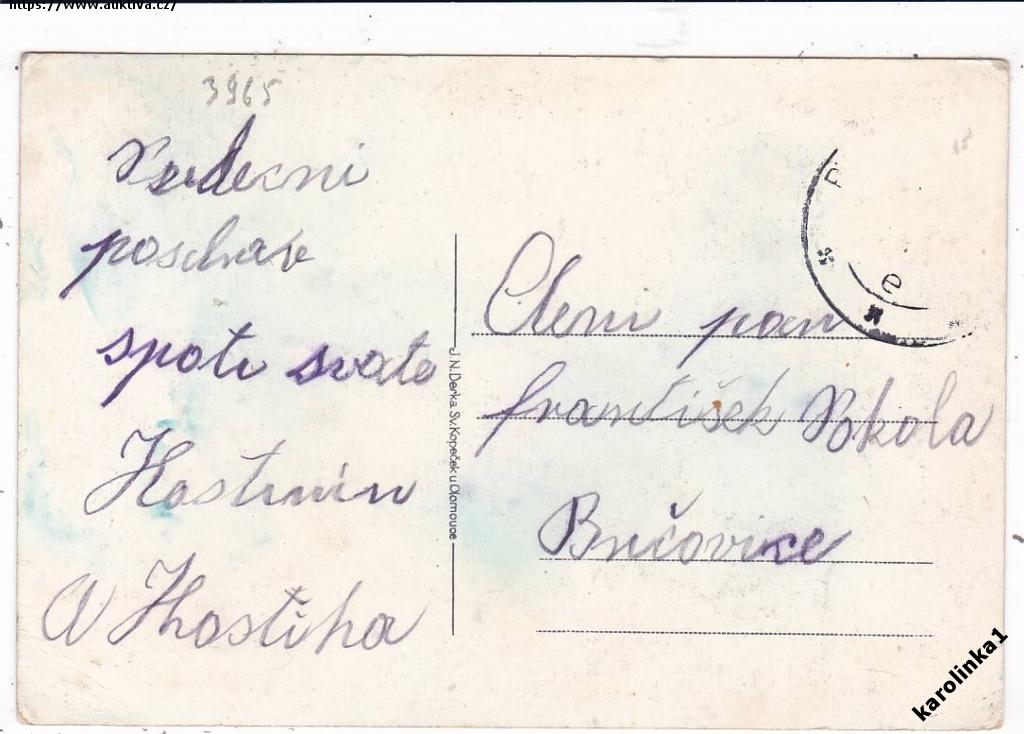 https://www.auktiva.cz/
3965
Srdecni
posdrav
spoti svate
Hostinin
A Hostiha
J.N.Derka, Sv.Kopeček u Olomouce
Cteni pan
františek
Bričovice
karolinka1